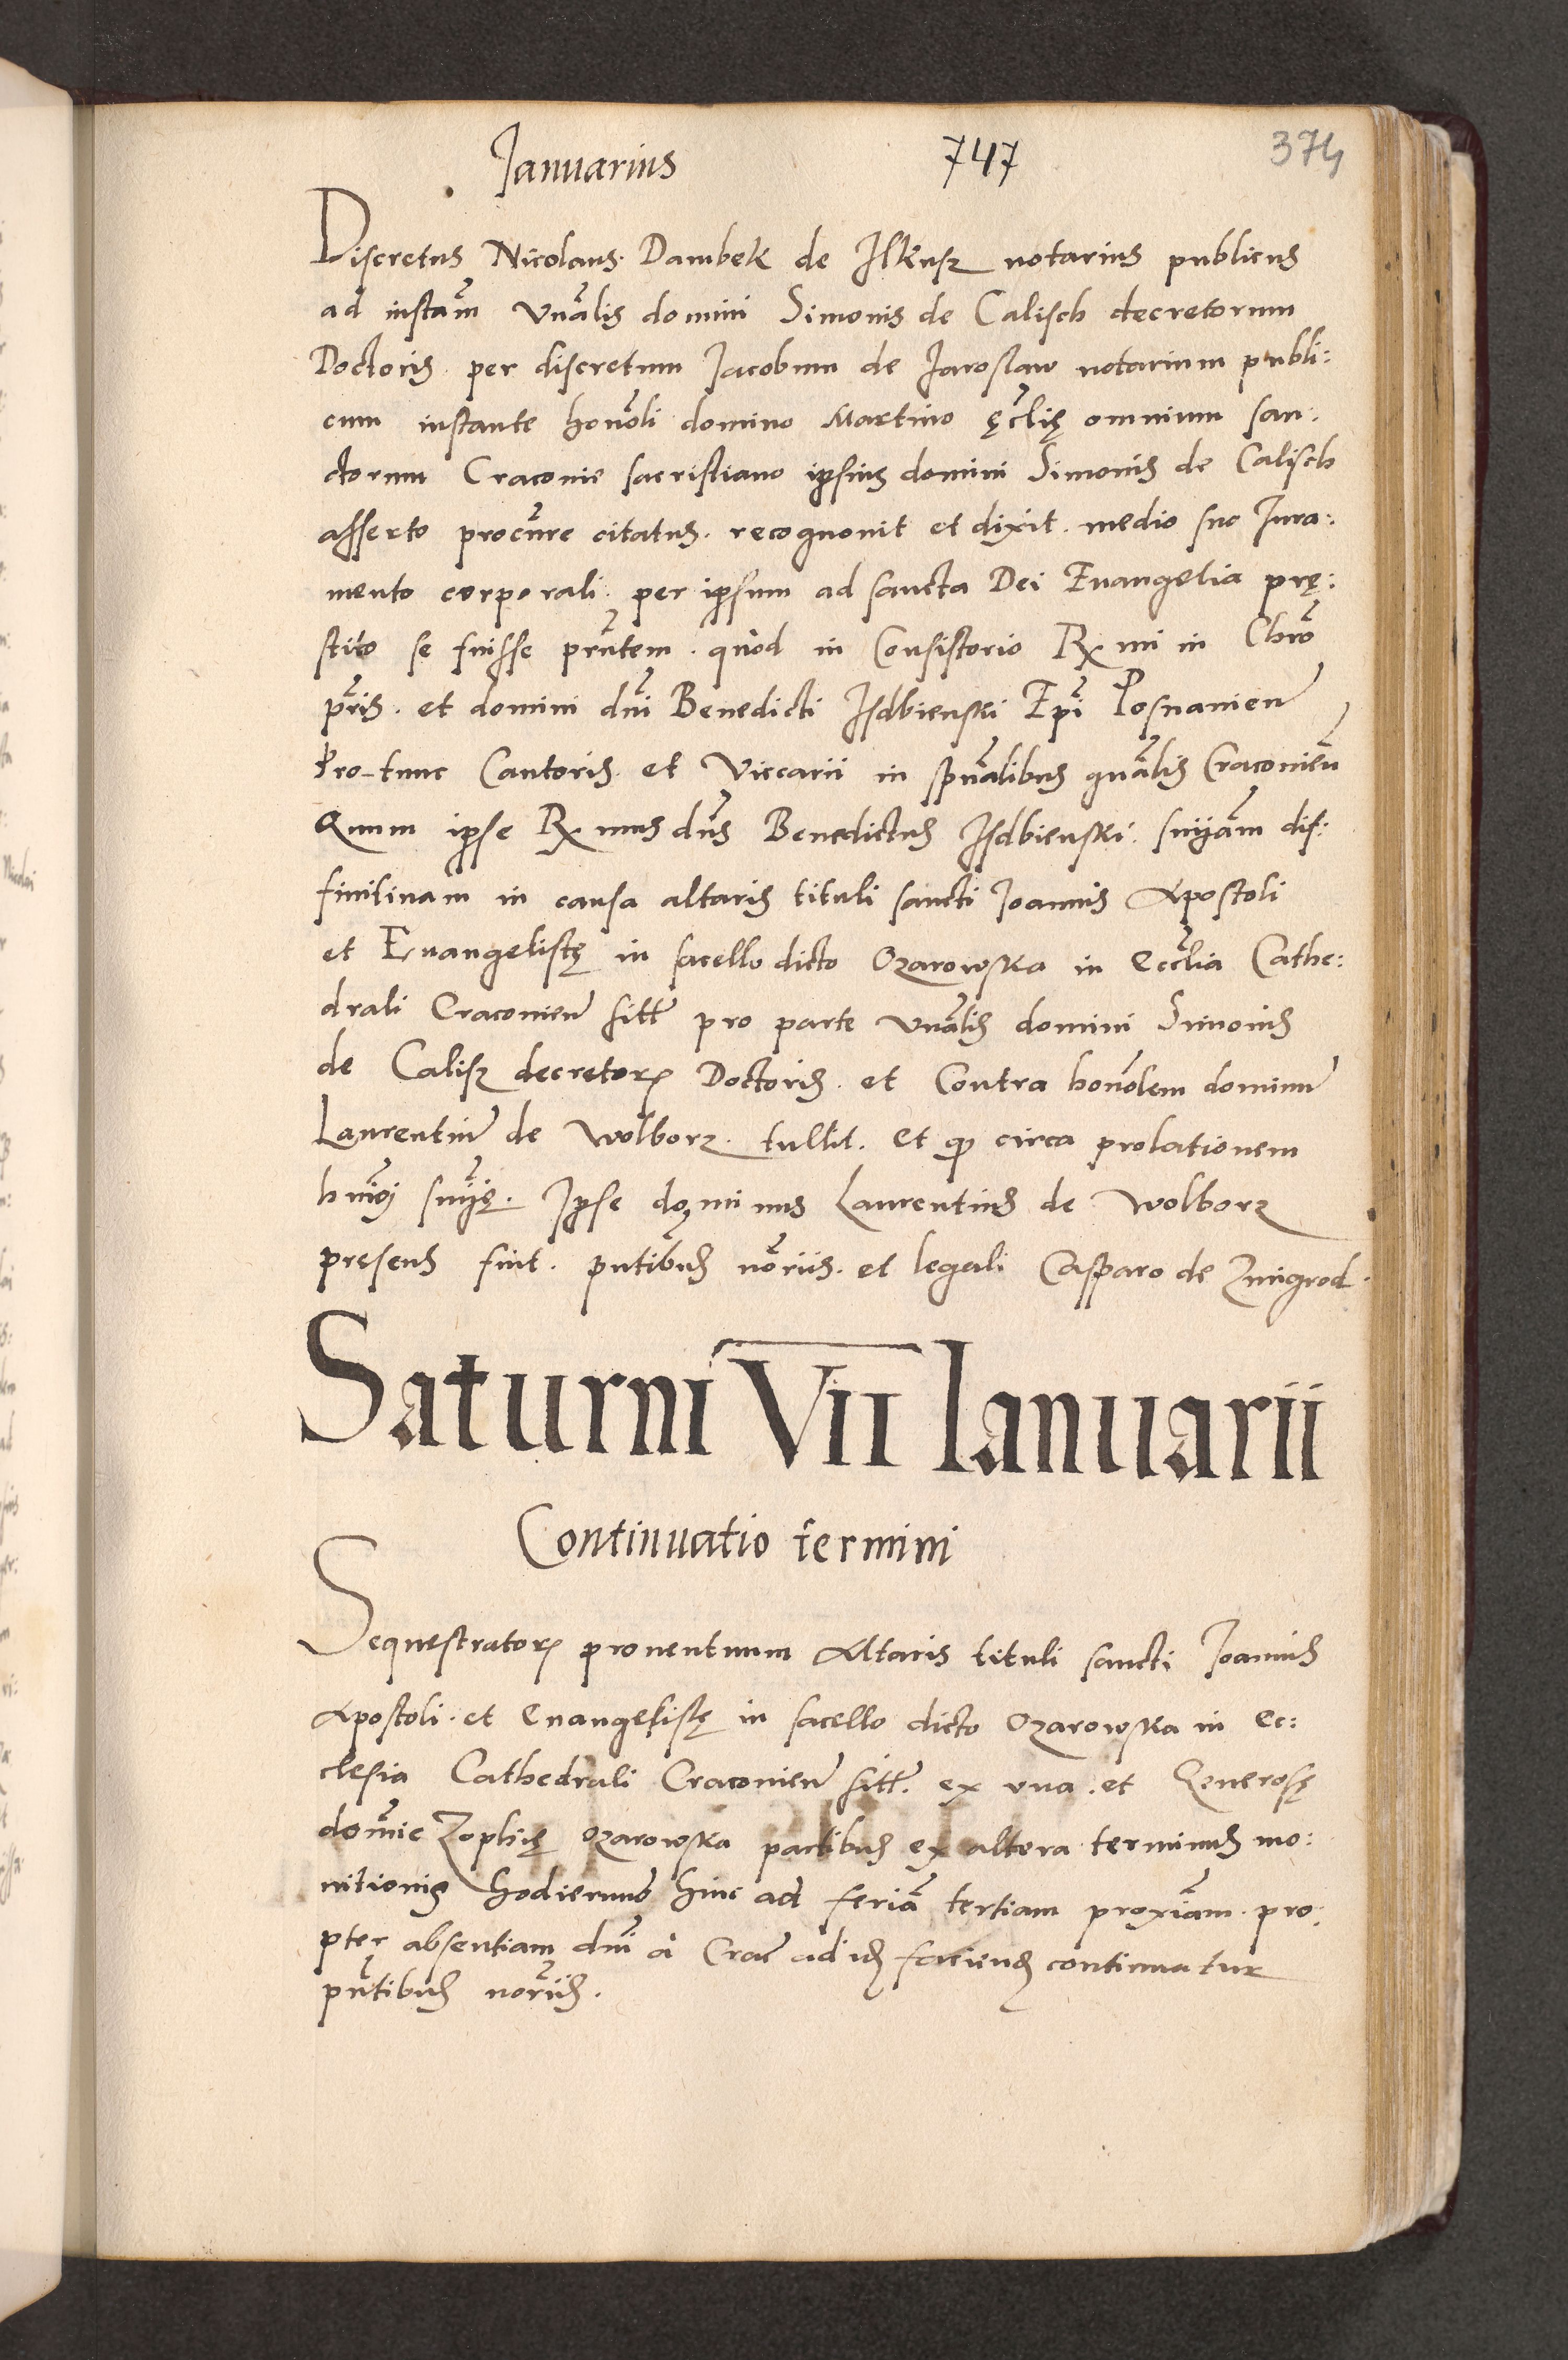 Januarius 747 374
Discretus Nicolaus Dambek de Ilkusz notarius publicus
ad instam̄ vnãlis domini Simonis de Calisch decretorum
Doctoris per discretum Jacobum de Jaroslaw notarium publi:
cum instante honõli domino Martino ęcl̃ię omnium san:
ctorum Craconie sacristiano ipsius domini Simonis de Calisch
asserto procur̃e citatus. recognouit et dixit. medio suo Jura:
mento corporali. per ipsum ad sancta Dei Euangelia prę:
stito se fuisse prñtem. quod in Consistorio Rx̃mi in Chrõ
pr̃is. et domini dñi Benedicti Isdbienski Epĩ Posnanieñ
Pro-tunc Cantoris. et Viccarii in spũalibus gñalis Cracouieñ
Quum ipse Rx̃mus dñs Benedictus Isdbienski. sniãm dif:
finitiuam in causa altaris tituli sancti Joannis Apostoli
et Euangelistę in sacello dicto Ozarowska in Eccl̃ia Cathe:
drali Cracouieñ sitĩ pro parte vnãlis domini Simonis
de Calisz decretorꝝ Doctoris. et Contra honõlem dominũ
Laurentiũ de Wolborz. tullit. et ꝙ circa prolationem
huĩoi snĩę. Ipse dominus Laurentius de Wolborz
pręsens fuit. pñtibus nõriis. et legali Casparo de Zmigrod.
Saturni VII Ianuarii
Continuatio termini
Sequestratorꝝ prouentuum Altaris tituli sancti Joannis
Apostoli. et Euangelistę in sacello dicto Ozarowska in Ec:
clesia Cathedrali Cracouieñ sitĩ. ex vna. et Generosę
domĩe Zophię Ozarowska partibus ex altera terminus mo:
nitionis hodiernus hinc ad feriã tertiam proxiãm. pro:
pter absentiam dñi a Crac̃ ad id faciend continuatur
pñtibus nõriis.